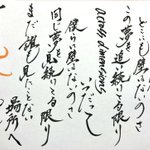 どこにも壁はないのさ
この夢を追い続ける限り
dimensions
いつだって
僕らに壁はないのさ
同じ夢を見続ける限り
まだ誰も見たことない場所へ